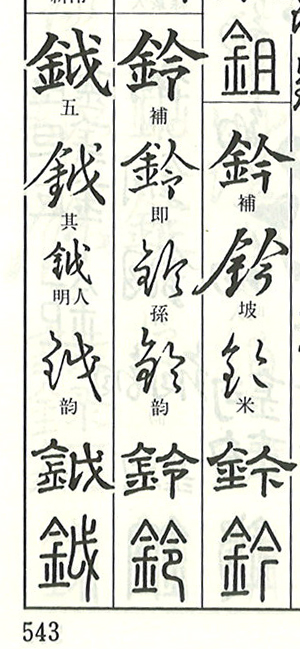 鉏
鈐
補
鈐
坡
鈐
米
鈐
鈐
鈴
補
鈴
即
鈴
孫
鈴
韵
鈴
鈴
鉞
五
鉞
其
鉞
明人
鉞
韵
鉞
鉞
543